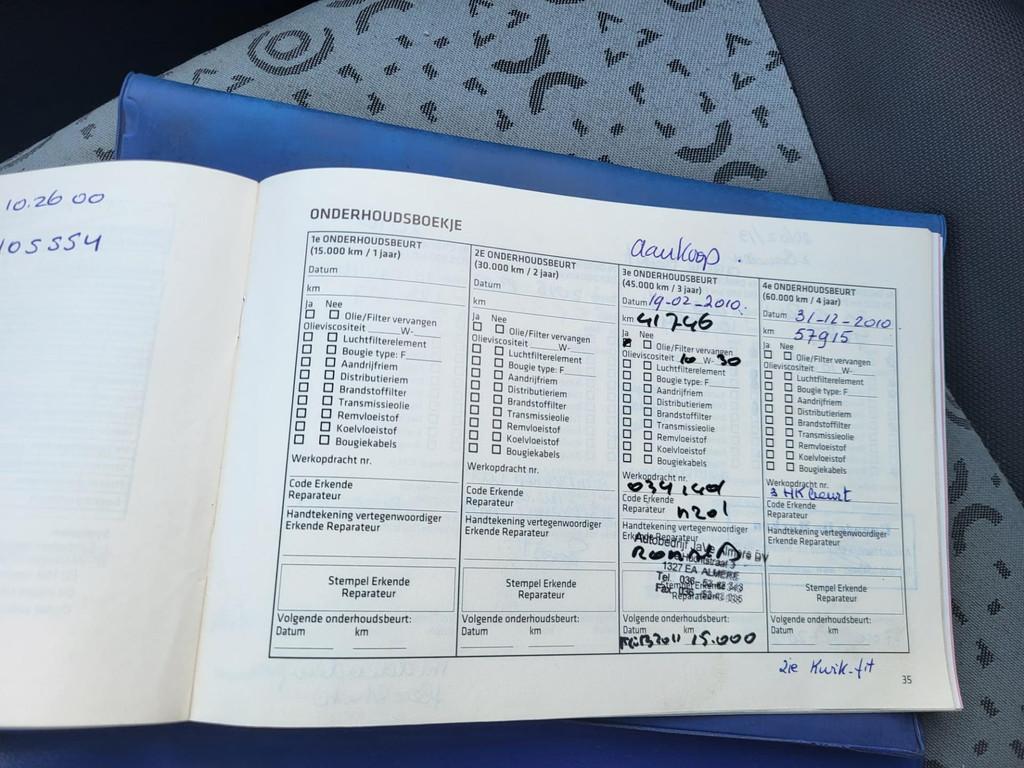 10.26 00
105554
ONDERHOUDSBOEKJE
aankoop.
1e ONDERHOUDSBEURT
(15.000 km / 1 jaar)
Datum
km
Ja Nee
Olie/Filter vervangen
Olieviscositeit ______W-____
Luchtfilterelement
Bougie type: F______
Aandrijfriem
Distributieriem
Brandstoffilter
Transmissieolie
Remvloeistof
Koelvloeistof
Bougiekabels
Werkopdracht nr.
Code Erkende
Reparateur
Handtekening vertegenwoordiger
Erkende Reparateur
Stempel Erkende
Reparateur
Volgende onderhoudsbeurt:
Datum km
2E ONDERHOUDSBEURT
(30.000 km / 2 jaar)
Datum
km
Ja Nee
Olie/Filter vervangen
Olieviscositeit ______W-____
Luchtfilterelement
Bougie type: F______
Aandrijfriem
Distributieriem
Brandstoffilter
Transmissieolie
Remvloeistof
Koelvloeistof
Bougiekabels
Werkopdracht nr.
Code Erkende
Reparateur
Handtekening vertegenwoordiger
Erkende Reparateur
Stempel Erkende
Reparateur
Volgende onderhoudsbeurt:
Datum km
3e ONDERHOUDSBEURT
(45.000 km / 3 jaar)
Datum 19-02-2010.
km 41746
Ja Nee
Olie/Filter vervangen
Olieviscositeit 10 W- 30
Luchtfilterelement
Bougie type: F______
Aandrijfriem
Distributieriem
Brandstoffilter
Transmissieolie
Remvloeistof
Koelvloeistof
Bougiekabels
Werkopdracht nr.
Code Erkende
Reparateur n201
Handtekening vertegenwoordiger
Erkende Reparateur
Autobedrijf Almere BV
1327 EA ALMERE
Tel. 036
Fax 036
Stempel Erkende
Reparateur
Volgende onderhoudsbeurt:
Datum km
2011 15.000
4e ONDERHOUDSBEURT
(60.000 km / 4 jaar)
Datum 31-12-2010.
km 57915
Ja Nee
Olie/Filter vervangen
Olieviscositeit ______W-____
Luchtfilterelement
Bougie type: F______
Aandrijfriem
Distributieriem
Brandstoffilter
Transmissieolie
Remvloeistof
Koelvloeistof
Bougiekabels
Werkopdracht nr.
Code Erkende
Reparateur
Handtekening vertegenwoordiger
Erkende Reparateur
Stempel Erkende
Reparateur
Volgende onderhoudsbeurt:
Datum km
zie Kwik-fit
35